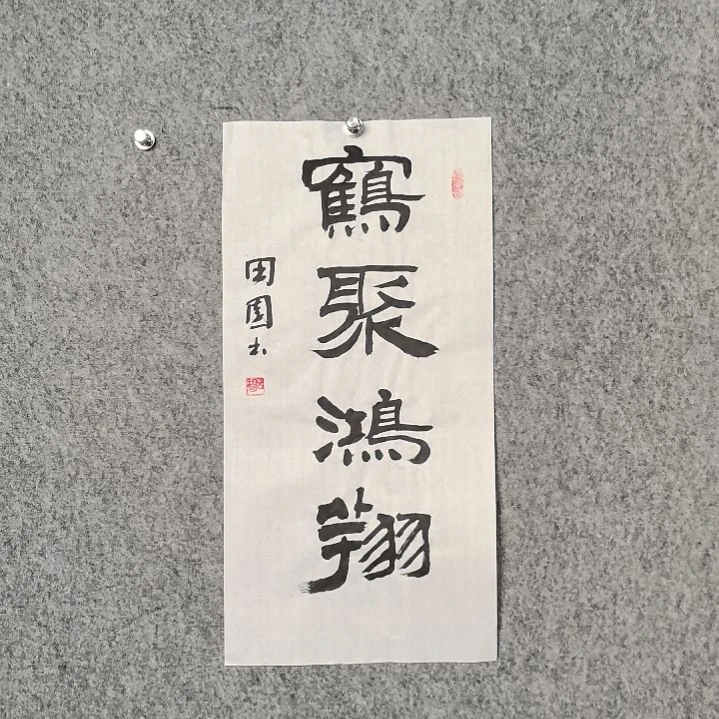 鶴聚鴻翔
田園书